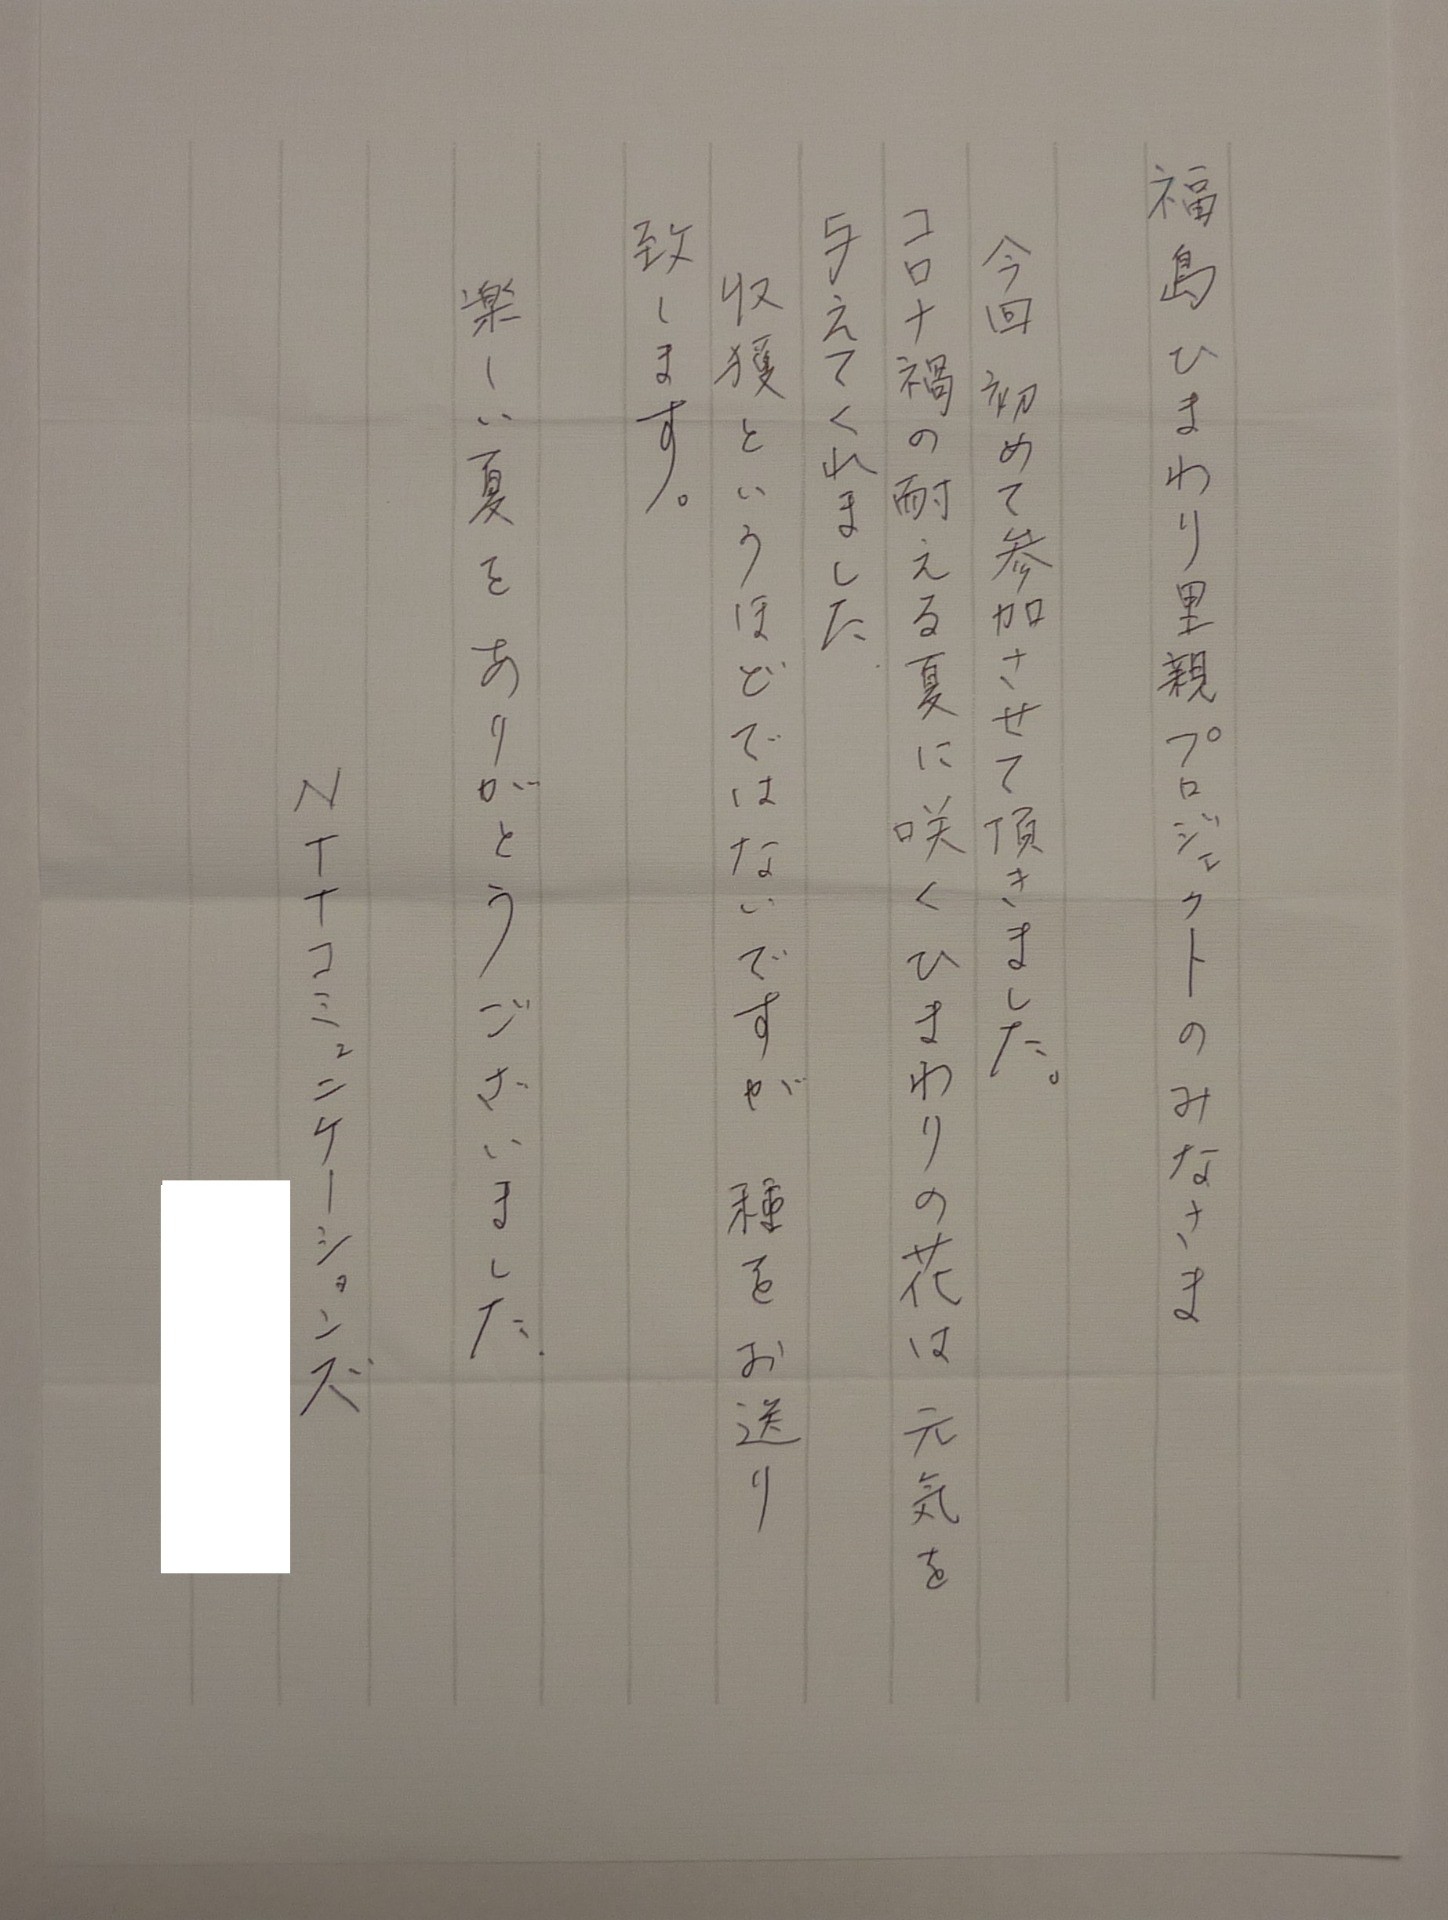 福島ひまわり里親プロジェクトのみなさま
今回初めて参加させて頂きました。
コロナ禍の耐える夏に咲くひまわりの花は元気を
与えてくれました
収獲というほどではないですが 種をお送り
致します。
楽しい夏をありがとうございました.
NTTコミュニケーションズ